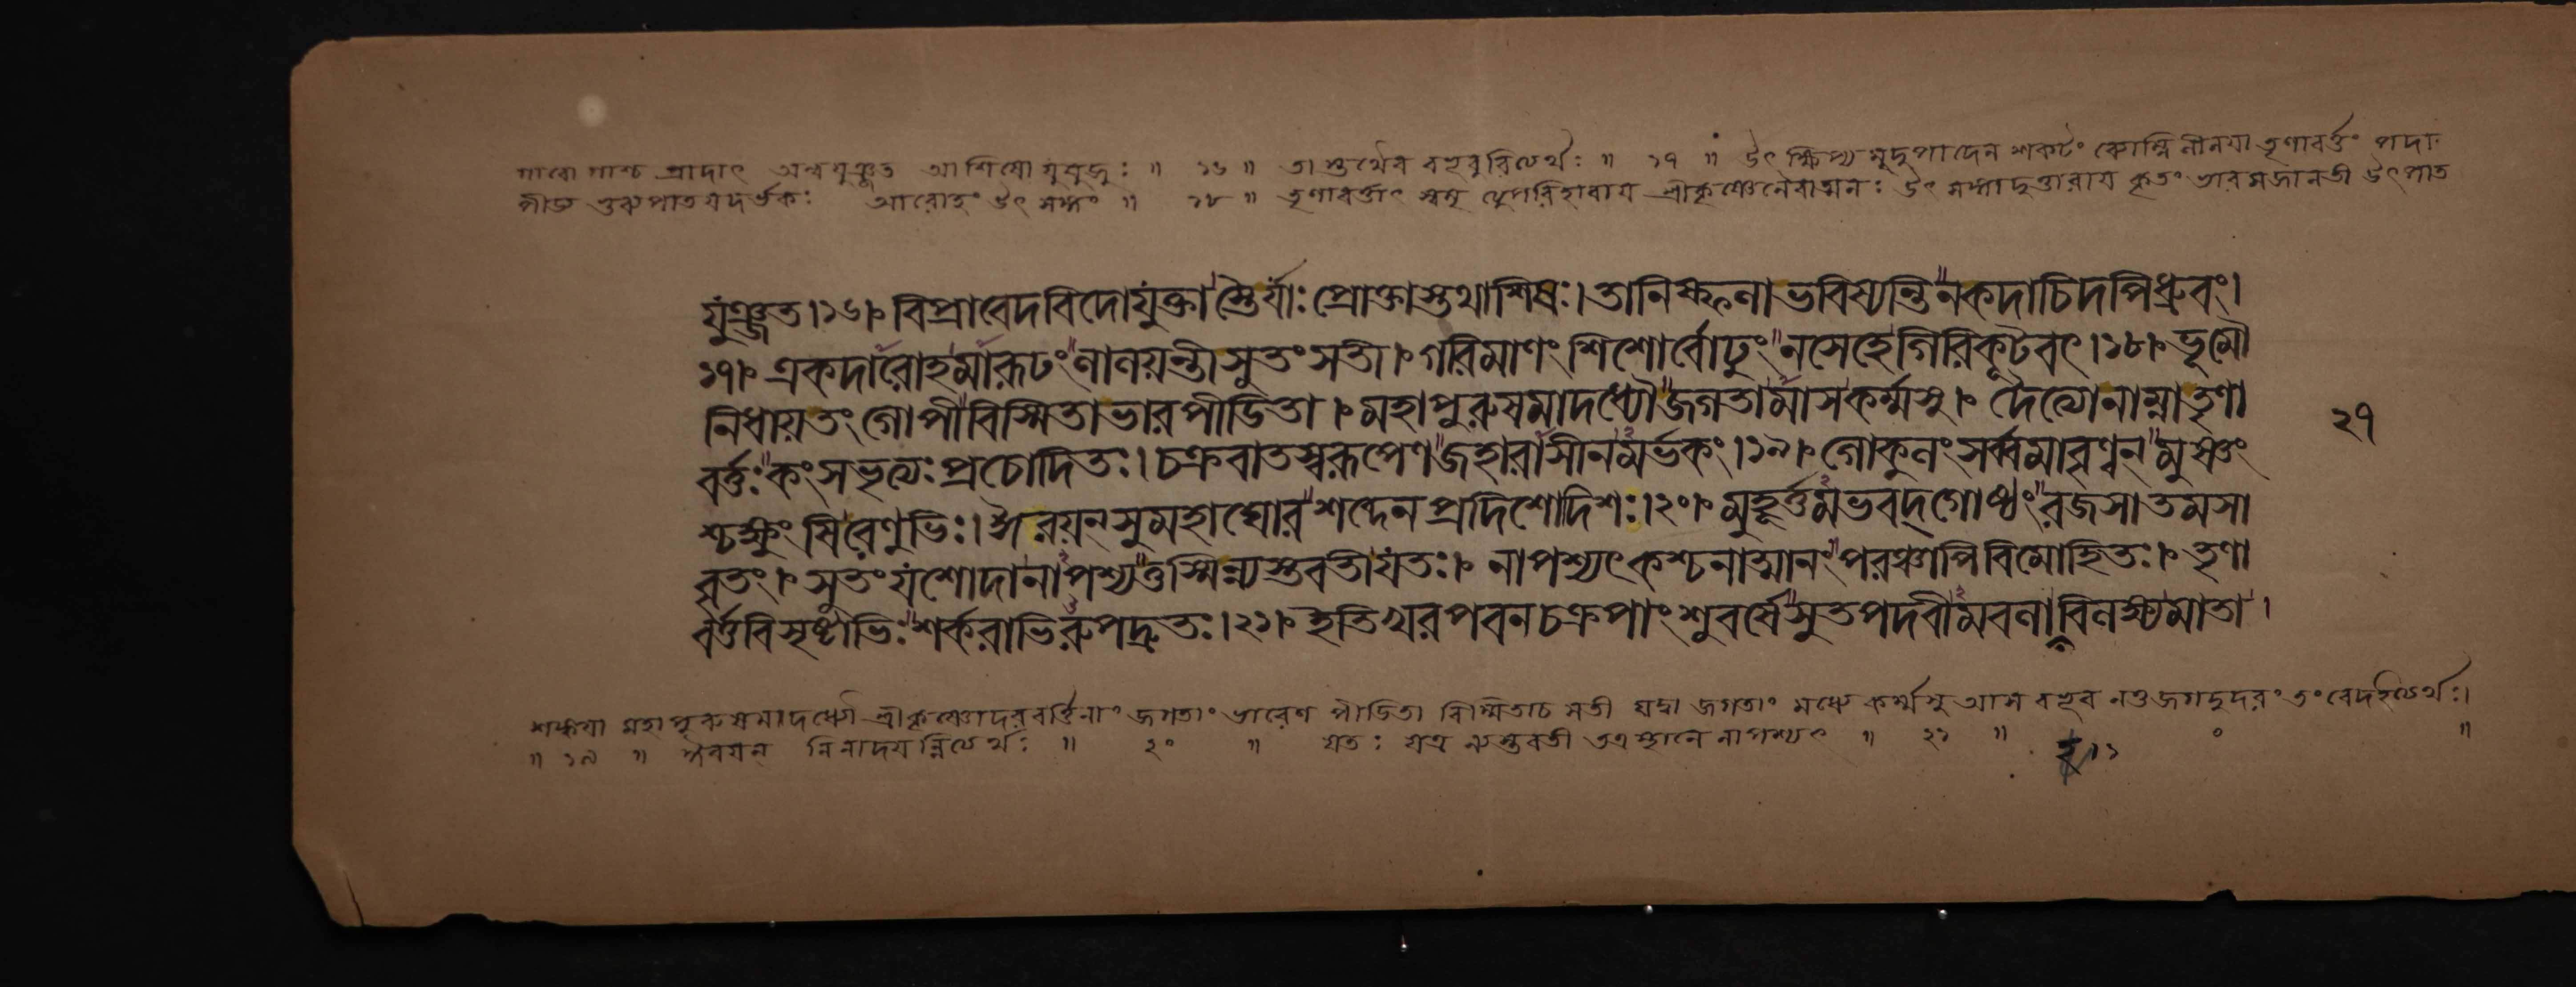 গাবো গাশ্চ প্রাদাৎ অন্বযুঞ্জত আশিষো যুযুজুঃ ॥ ১৬ ॥ তাস্তথৈব বভূবুরিত্যর্থঃ ॥ ১৭ ॥ উৎক্ষিপ্য মৃদুপাদেন শকটং ব্যোম্নি নীনয়া তৃণাবর্ত্তং পদা
আরোহং উৎসঙ্গং ॥ ১৮ ॥ তৃণাবর্ত্তাৎ শ্রীকৃষ্ণেনৈবাত্মনঃ উৎসঙ্গাদুত্তারায় কৃতং ভারমজানতী উৎপাত
যুঞ্জত।১৬। বিপ্রাবেদবিদোযুক্তাস্তৈর্যাঃপ্রোক্তাস্তথাশিষঃ। তানিষ্ফলাভবিষ্যন্তি"নকদাচিদপিধ্রুবং।
১৭। একদারোহমারূঢং"লালয়ন্তীসুতংসতী। গরিমাণংশিশোর্বোঢুং"নসেহেগিরিকূটবৎ।১৮। ভূমৌ
নিধায়তংগোপীবিস্মিতাভারপীডিতা। মহাপুরুষমাদধ্যৌ"জগতামাসকর্ম্মসু। দৈত্যোনাম্নাতৃণা ২৭
বর্ত্তঃ"কংসভৃত্যঃপ্রচোদিতঃ। চক্রবাতস্বরূপেণ"জহারাসীনমর্ভকং।১৯। গোকুলংসর্ব্বমাবৃণ্বন্"মুষ্ণং
শ্চক্ষুংষিরেণুভিঃ। ঈরয়ন্সুমহাঘোর"শব্দেনপ্রদিশোদিশঃ।২০। মুহূর্ত্তমভবদ্গোষ্ঠং"রজসাতমসা
বৃতং। সুতংযশোদানাপশ্যত্তস্মিন্ন্যস্তবতীযতঃ। নাপশ্যৎকশ্চনাত্মানং"পরঞ্চাপিবিমোহিতঃ। তৃণা
বর্ত্তবিসৃষ্টাভিঃ"শর্করাভিরুপদ্রুতঃ।২১। ইতিখরপবনচক্রপাংশুবর্ষে"সুতপদবীমবলাবিলক্ষ্যমাতা।
শঙ্কয়া মহাপুরুষমাদধ্যৌ শ্রীকৃষ্ণোদরবর্ত্তিনাং জগতাং ভারেণ পীডিতা বিস্মিতাচ সতী যদ্বা জগতাং মধ্যে কর্ম্মসু আস বভূব নতু জগদুদরং তং বেদইত্যর্থঃ।
॥ ১৯ ॥ ঈরয়ন্ নিনাদয়ন্নিত্যর্থঃ ॥ ২০ ॥ যতঃ যত্র ন্যস্তবতী তত্রস্থানে নাপশ্যৎ ॥ ২১ ॥